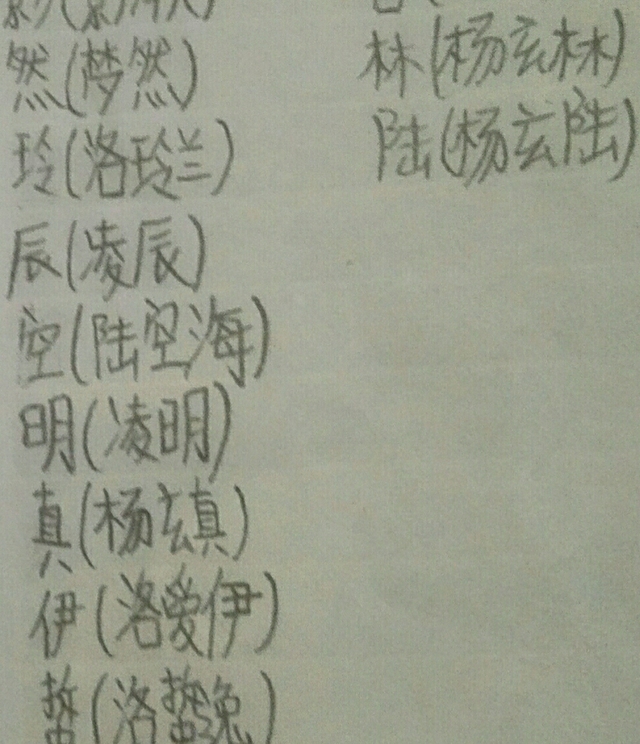 然(梦然)
玲(洛玲兰)
辰(凌辰)
空(陆空海)
明(凌明)
真(杨玄真)
伊(洛爱伊)
林(杨玄林)
陆(杨玄陆)